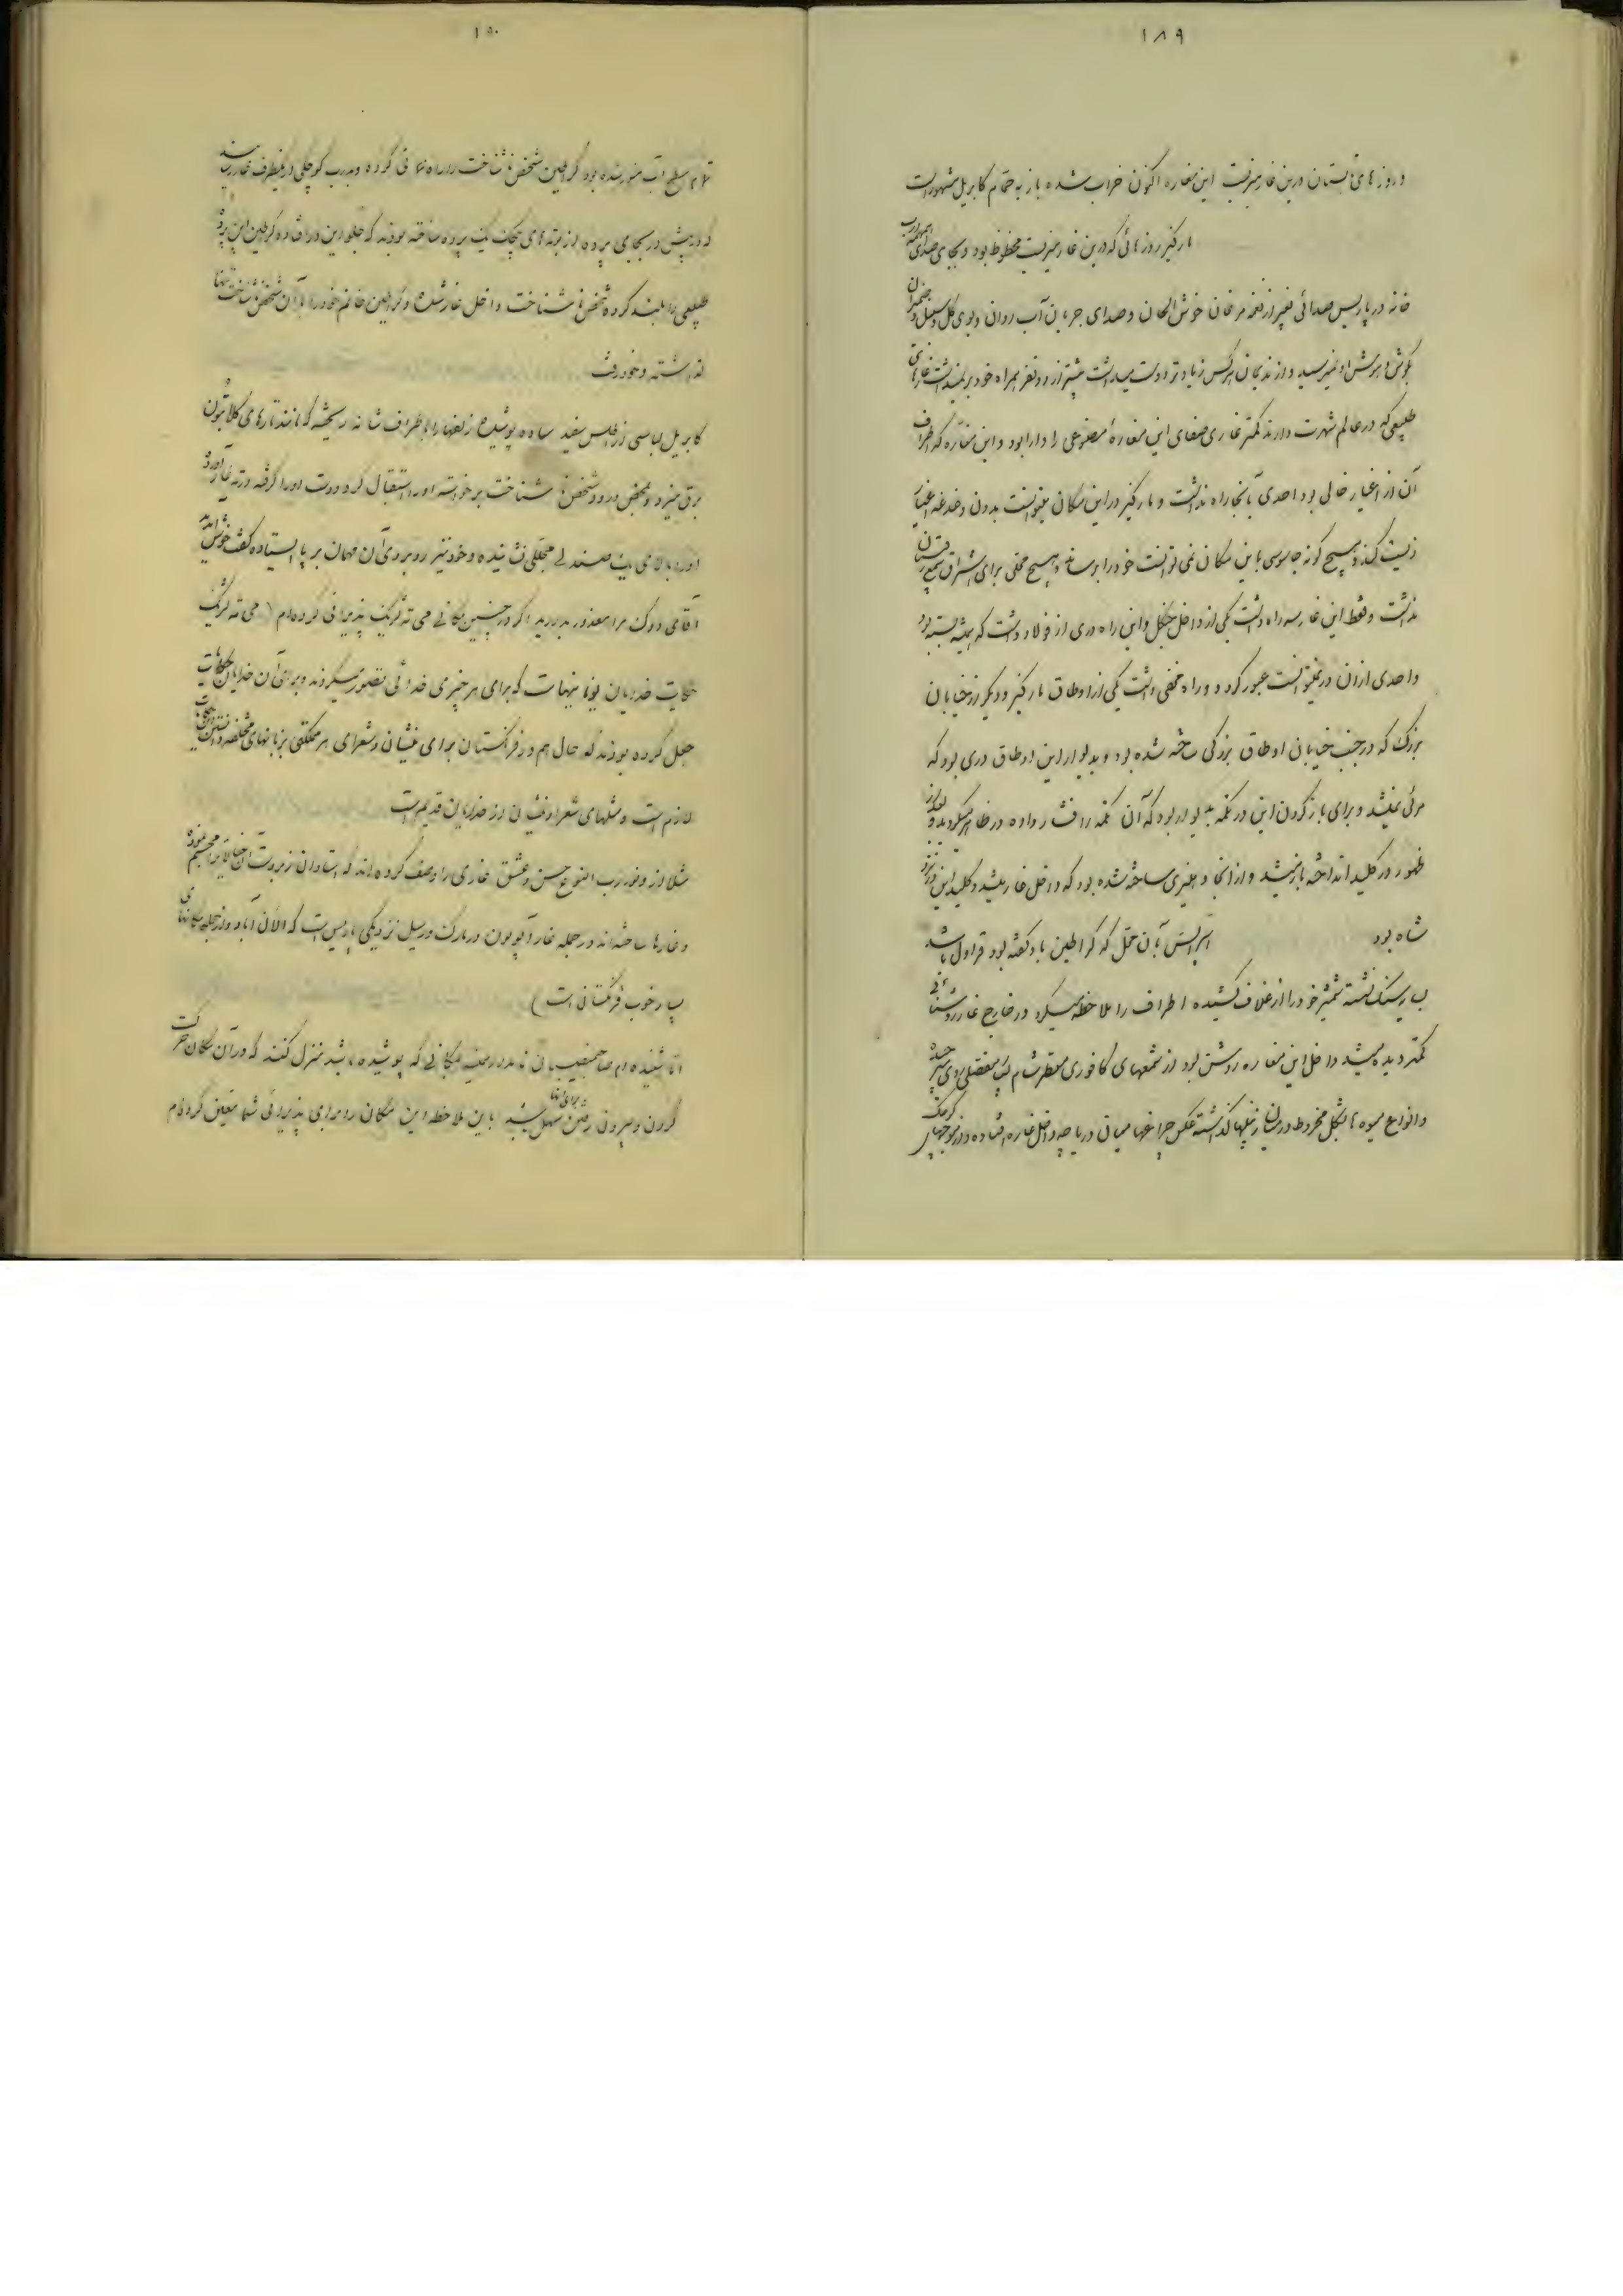 ۱۸۹
و روزهای تابستان درین غار میزیست این مغاره اکنون خراب شده باز به حمام کابریل مشهور است
مارکیز روزهائی که درین غار میزیست محظوظ بود و بجای صدای
خانه در پاریس صدائی بغیر از نغمه مرغان خوش الحان و صدای جریان آب روان و بوی گل و سنبل و ضیمران
بگوش و هوش او نمیرسید و از ندیمان هرکس زیادتر دوست میداشت بیشتر از دو نفر همراه خود
طبیعی که در عالم شهرت دارند کمتر غاری صفای این مغارهٔ مصنوعی را دارا بود و این مغاره که اطراف
آن از اغیار خالی بود احدی بآنجا راه نداشت و مارکیز در این مکان میتوانست بدون دغدغه اغیار
زیست کند و هیچ گونه جاسوسی باین مکان نمی توانست خود را برساند و هیچ محلی برای استراق سمع
نداشت و فقط این غار سه راه داشت یکی از داخل جنگل و این راه دری از فولاد داشت که همیشه بسته بود
و احدی از آن در نمیتوانست عبور کرد و دو راه مخفی داشت یکی از اوطاق مارکیز و دیگر از خیابان
بزرگ که در جنب خیابان اوطاق بزرگی ساخته شده بود و بدیوار این اوطاق دری بود که
مرئی نمیشد و برای باز کردن این در تکمه بدیوار بود که آن تکمه را فشار داده در ظاهر میگردید و بعد از
ظهور در کلید انداخته باز میشد و از آنجا دهلیزی ساخته شده بود که داخل غار میشد و کلید این در نزد
شاه بود
بآن محل که کراطین باو گفته بود قراول باشد
سنگ نشسته شمشیر خود را از غلاف کشیده اطراف را ملاحظه میکرد در خارج غار روشنائی
کمتر دیده میشد داخل این مغاره روشن بود از شمعهای کافوری معطر شام مفصلی روی میز
و انواع میوه ها بشکل مخروط در میان زنبیلها گذاشته عکس چراغها میان دریاچه داخل غار افتاده و از
۱۹۰
تمام سطح آب منور شده بود کراطین شخص ناشناخت را راهنمائی کرده و بدرب کوچکی در یکطرف غار رسانید
که درش در بجای پرده از بوته های پیچک یک پرده ساخته بودند که جلو این در افتاده کراطین این پردهٔ
طبیعی را بلند کرده شخص ناشناخت داخل غار شد و کراطین خانم خود را با آن شخص ناشناخت تنها
گذاشته و خود رفت
کابریل لباسی از اطلس سفید ساده پوشیده زلفها را باطراف شانه ریخته که مانند تارهای گلابتون
برق میزد و بمحض ورود شخص ناشناخت برخواسته او را استقبال کرد و دست او را گرفته در ته غار آورد
او را بالای یک صندلی مجللی نشانیده و خود نیز روبروی آن مهمان بر پا ایستاده گفت خوش آمدید
آقای دوک مرا معذور بدارید اگر در چنین مکانی می ته لژیک پذیرائی کرده ام (می ته لژیک
حکایت خدایان یونانیهاست که برای هر چیزی خدائی تصور میکردند و برای آن خدایان حکایات
جعل کرده بودند که حال هم در فرنگستان برای نقاشان و شعرای هر مملکتی بزبانهای مختلفه دانستن
لازم است و مثلهای شعرا و نقاشان از خدایان قدیم است
مثلا از ونوز رب النوع حسن و عشق غاری را وصف کرده اند که استادان زبردست آن خیالات را مجسم نموده
و غارها ساخته اند در جمله غار آپولون در پارک ورسیل نزدیکی پاریس است که الان آباد و از جمله مکانهای
بسیار خوب فرنگستان است)
اما شنیده ام صاحبمنصبانی مکانی که پوشیده باشد منزل کنند که در آن مکان حرکت
کردن و بیرون رفتن برای آنها سهل باشد باین ملاحظه این مکان را برای پذیرائی شما معین کرده ام